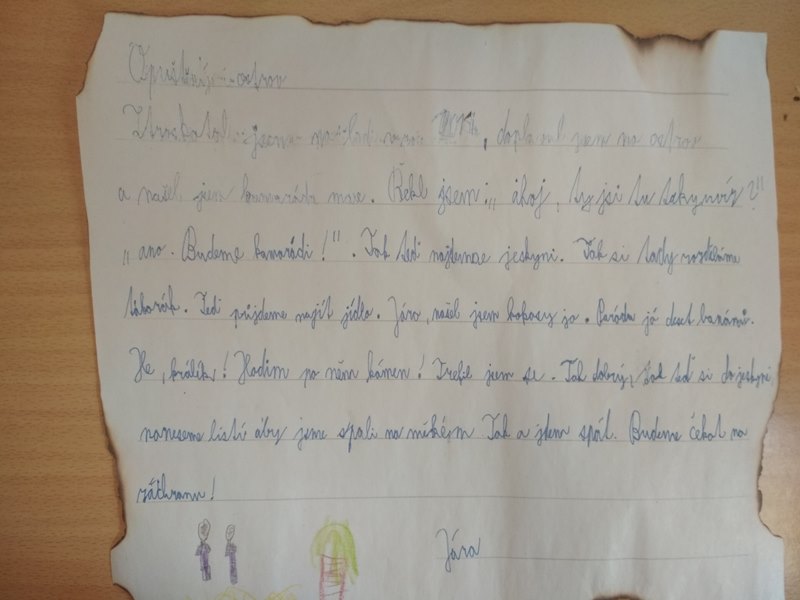 Opuštěný ostrov
Ztroskotal jsem na lodi, doplaval jsem na ostrov
a našel jsem kamaráda max. Řekl jsem: „ ahoj, ty jsi tu taky uvíz ?"
„ ano. Budeme kamarádi!". Tak tedi najdeme jeskyni. Tak si tady rozděláme
táborák. Tedi půjdeme najít jídlo. Járo, našel jsem kokosy jo. Paráda já deset banánů.
He, králík! Hodim po něm kámen! Trefil jsem se. Tak dobrý, tak teď si do jeskyně
naneseme listí aby jsme spali na měkkém Tak a jdem spát. Budeme čekat na
záchranu!
Jára